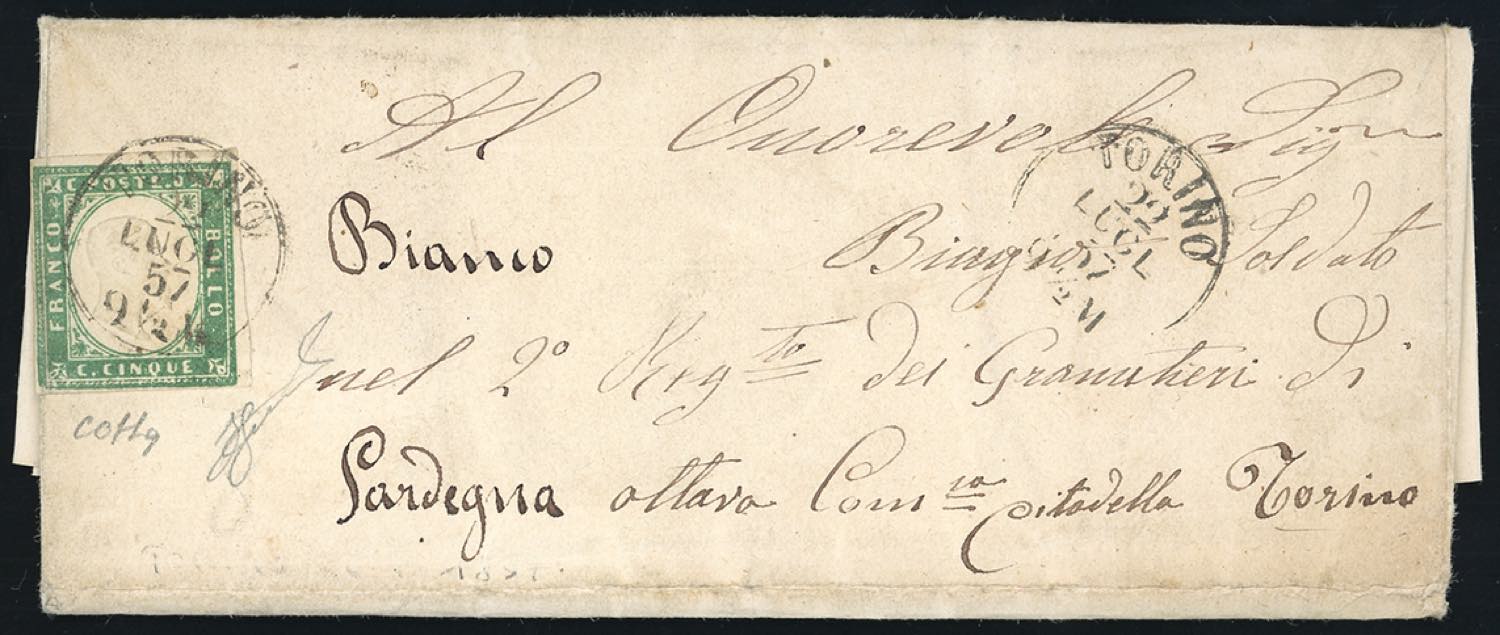 Al Onorevole Sig.r
Bianco Biagio Soldato
nel 2º Regg.to dei Granatieri di
Sardegna ottava Com.ia Citadella Torino
C. POSTE
BOLLO
C. CINQUE
FRANCO
LUGL
57
9½ M
TORINO
22
LUGL
57
½ M